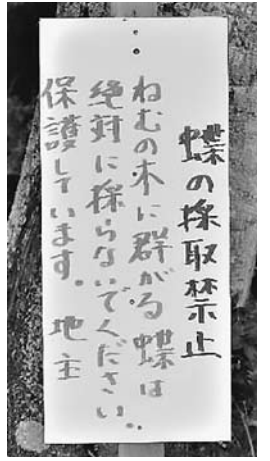 蝶の採取禁止
ねむの木に群がる蝶は
絶対に採らないでください。
保護しています。 地主